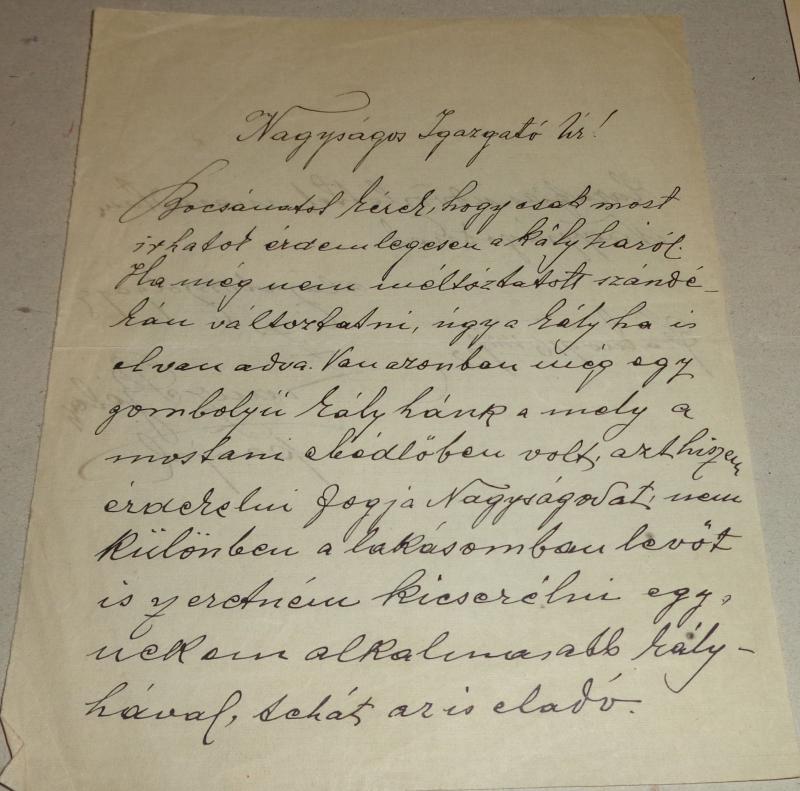 Nagyságos Igazgató Úr!
Bocsánatot kérek, hogy csak most
írhatok érdemlegesen a kályháról.
Ha még nem méltóztatott szándé-
kán változtatni, úgy a kályha is
el van adva. Van azonban még egy
gombolyű kályhánk a mely a
mostani ebédlőben volt, azt hiszem
érdekelni fogja Nagyságodat, nem
különben a lakásomban levőt
is szeretném kicserélni egy,
nekem alkalmasabb kály-
hával, tehát az is eladó.